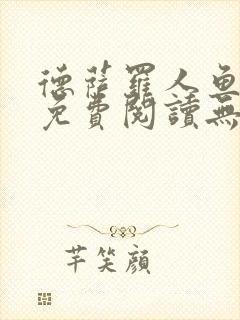 德薩羅人魚
免費閱讀無
芊笑顏